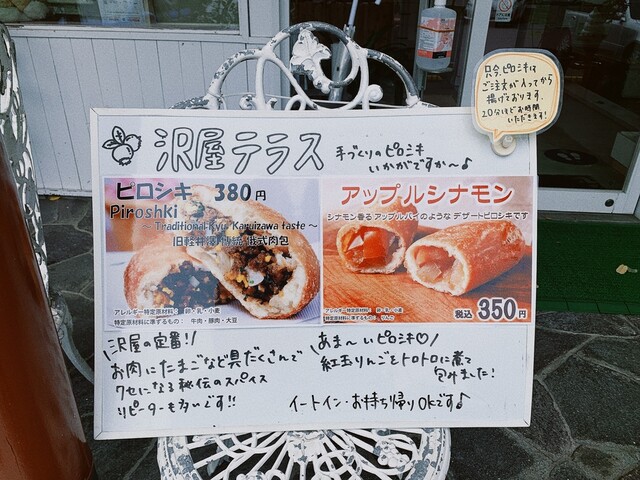 只今、ピロシキは
ご注文が入ってから
揚げております。
20分ほどお時間
いただきます!
沢屋テラス
手づくりのピロシキ
いかがですか〜♪
ピロシキ 380円
Piroshki
〜 Traditional Kyu Karuizawa taste 〜
旧軽井沢
式肉包
アレルギー特定原材料: 卵・乳・小麦
特定原材料に準ずるもの: 牛肉・豚肉・大豆
アップルシナモン
シナモン香るアップルパイのような デザートピロシキです
アレルギー特定原材料: 乳・小麦
特定原材料に準ずるもの: りんご
税込 350円
沢屋の定番!!
お肉にたまごなど具だくさんで
クセになる秘伝のスパイス
リピーターも多いです!!
あま〜いピロシキ♡
紅玉りんごをトロトロに煮て
包みました!
イートイン・お持ち帰りOKです♪